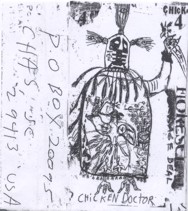 P O BOX 20095
CHAS SC 29413 USA
CHICK
4
MONEY
CHICKEN DOCTOR